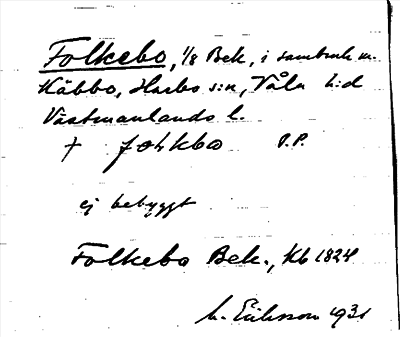 Folkebo, 1/8 Bek, i sambruk m.
Käbbo, Harbo s:n, Våla h:d
Västmanlands l.
† fołkbo P.P.
ej bebyggt
Folkebo Bek., Kb 1824
M. Eriksson 1931